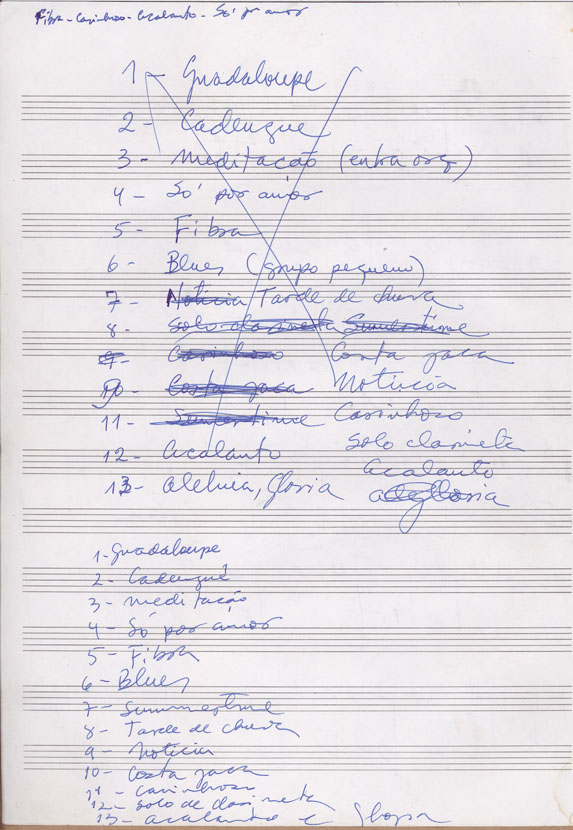 Fibra - Carinhoso - Acalanto - Só por amor
1 - Guadaloupe
2 - Cadengue
3 - Meditação (entra org)
4 - Só por amor
5 - Fibra
6 - Blues (grupo pequeno)
7 - Notícia / Tarde de chuva
8 - Solo clarineta Summertime
9 - Carinhoso Costa jaca
10 - Costa jaca Notícia
11 - Summertime Carinhoso
12 - Acalanto Solo clarinete
Acalanto
13 - Aleluia, Gloria
1 - Guadaloupe
2 - Cadengué
3 - meditação
4 - Só por amor
5 - Fibra
6 - Blues
7 - Summertime
8 - Tarde de chuva
9 - Notícia
10 - Costa jaca
11 - Carinhoso
12 - Solo de clarineta
13 - acalanto e